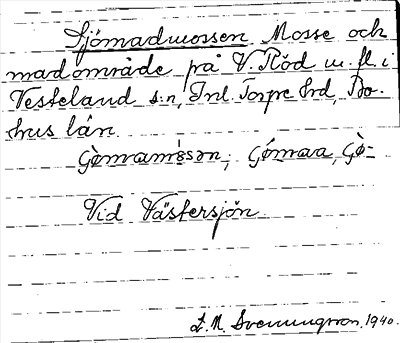 Sjömadmossen Mosse och
madområde på V. Röd m.fl. i
Vesteland s:n, Inl. Torpe hrd, Bo-
hus län.
Gòmramòssən, Gómraa, Gò-
Vid Västersjön.
L. M. Svenungsson, 1940.